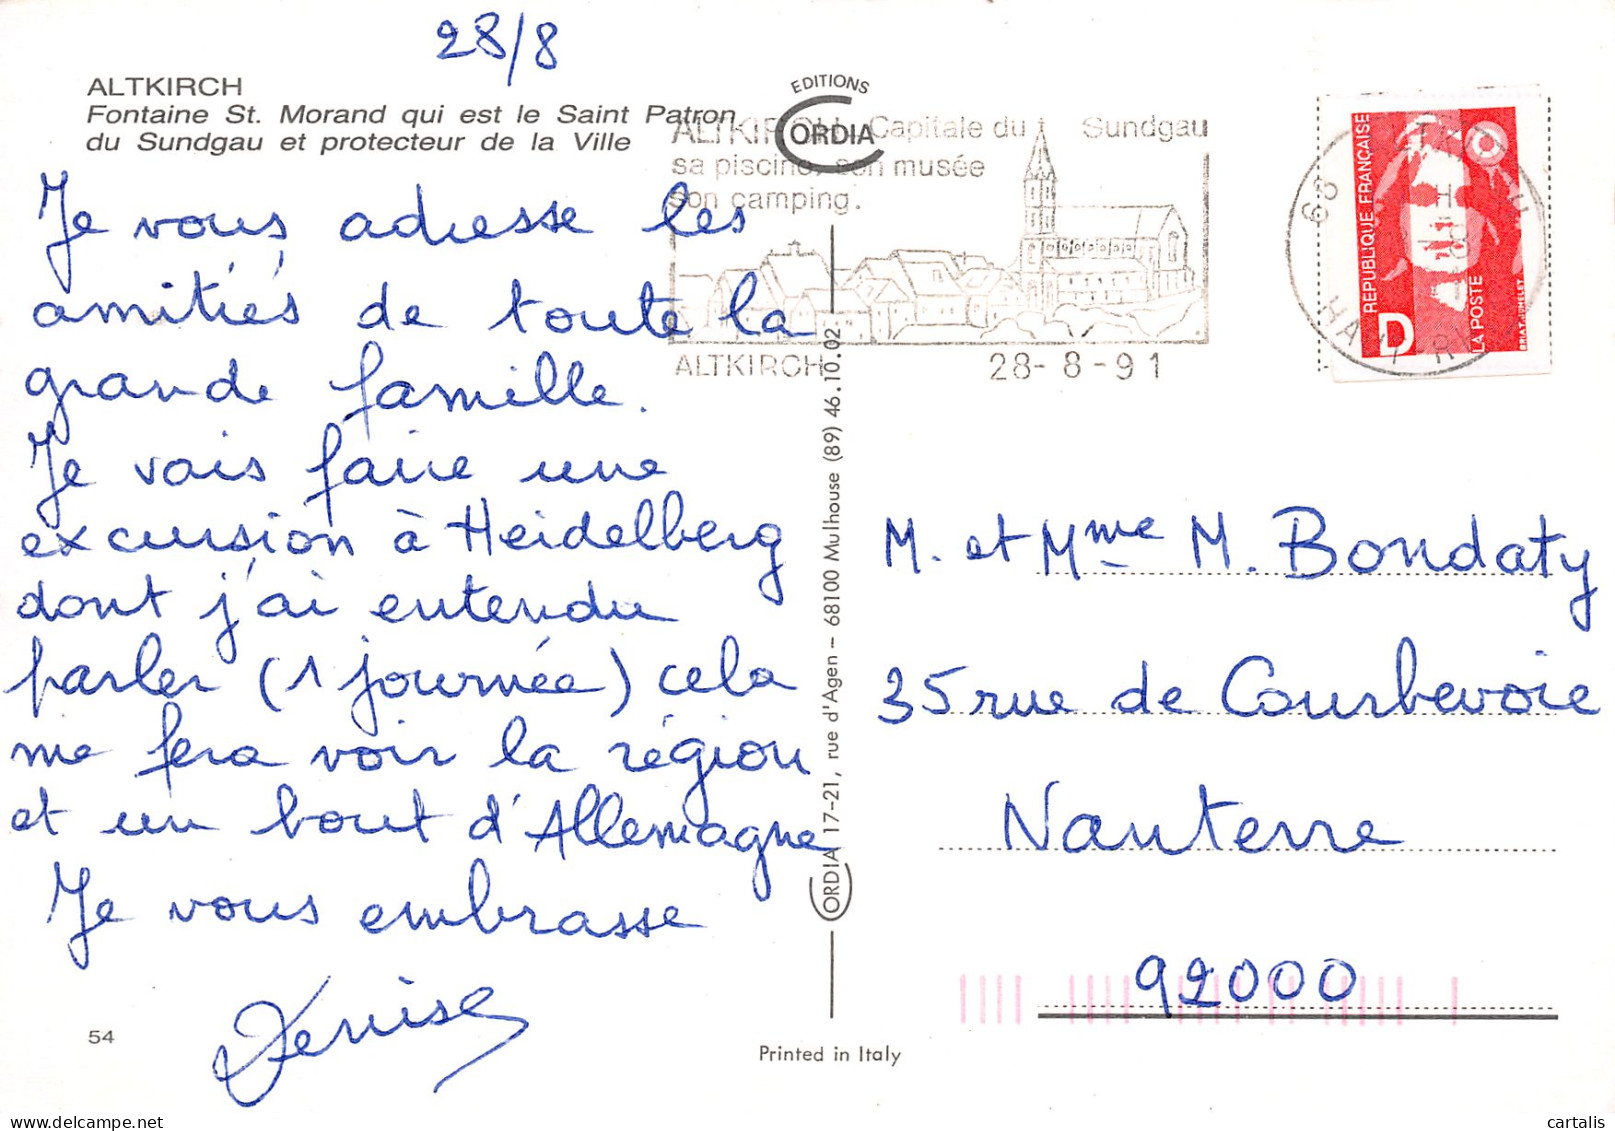 28/8
ALTKIRCH
Fontaine St. Morand qui est le Saint Patron
du Sundgau et protecteur de la Ville
Je vous adresse les
amitiés de toute la
grande famille.
Je vais faire une
excursion à Heidelberg
dont j'ai entendu
parler (1 journée) cela
me fera voir la région
et un bout d'Allemagne
Je vous embrasse
Denise
54
EDITIONS
CORDIA
ALTKIRCH Capitale du Sundgau
sa piscine, son musée
son camping.
ALTKIRCH 28-8-91
CORDIA 17-21, rue d'Agen – 68100 Mulhouse (89) 46.10.02
Printed in Italy
68 ALTKIRCH
HAUT RHIN
REPUBLIQUE FRANÇAISE
D
LA POSTE
BRIAT-JUMELET
M. et Mme M. Bondaty
35 rue de Courbevoie
Nanterre
92000
cartalis